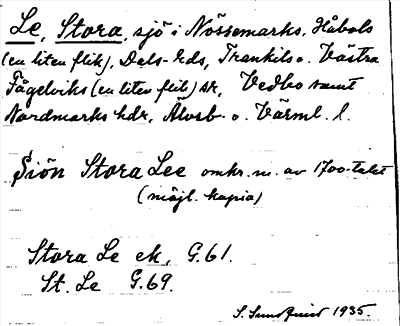 Le, Stora, sjö i Nössemarks, Håbols
(en liten flik), Dals-Eds, Trankils o. Västra
Fågelviks (en liten flik) snr, Vedbo samt
Nordmarks hdr, Älvsb. o. Värml. l.
Siön Stora Lee omkr. m. av 1700-talet
(möjl. kopia)
Stora Le ek, G.61.
St. Le G.69.
S. 1935.